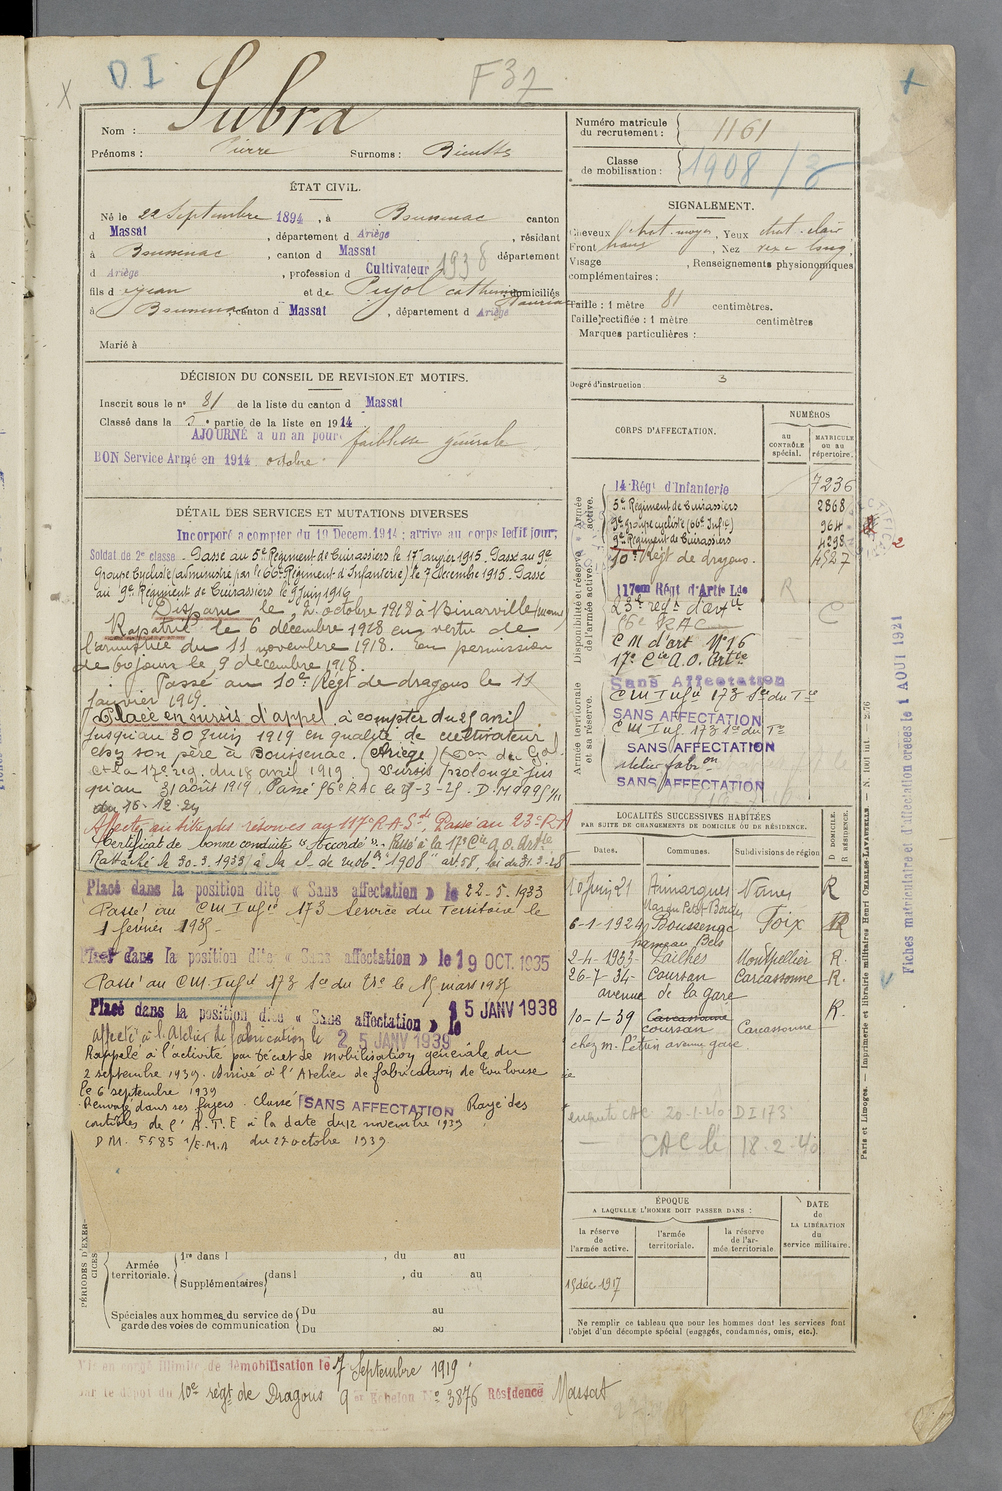 D I
F 37
Nom : Subra
Prénoms : Pierre Surnoms :
ÉTAT CIVIL.
Né le 22 Septembre 1894, à Boussenac canton
d Massat, département d Ariège, résidant
à Boussenac, canton d Massat département
d Ariège, profession d Cultivateur 1938
fils d Jean et de Pujol Catherine domiciliés
à Boussenac canton d Massat, département d Ariège
Marié à
DÉCISION DU CONSEIL DE REVISION ET MOTIFS.
Inscrit sous le n° 81 de la liste du canton d Massat
Classé dans la 5e partie de la liste en 1914
AJOURNÉ a un an pour faiblesse générale
BON Service Armé en 1914 octobre
DÉTAIL DES SERVICES ET MUTATIONS DIVERSES
Incorporé a compter du 19 Decem. 1914 ; arrive au corps ledit jour;
Soldat de 2e classe. Passé au 5e Régiment de Cuirassiers le 17 janvier 1915. Passé au 9e
Groupe Cycliste (administré par le 66e Régiment d'Infanterie) le 7 décembre 1915. Passé
au 9e Régiment de Cuirassiers le 9 juin 1916
Disparu le 2 octobre 1918 à Binarville (Marne)
Rapatrié le 6 décembre 1918 en vertu de
l'armistice du 11 novembre 1918. En permission
de 60 jours le 9 décembre 1918.
Passé au 10e Régt de dragons le 11
janvier 1919.
Placé en sursis d'appel à compter du 25 avril
jusqu'au 30 juin 1919 en qualité de cultivateur
chez son père à Boussenac (Ariège) (Don du Gal
Ct la 17e rég. du 18 avril 1919.) Sursis prolongé jus
qu'au 31 août 1919. Passé 56e RAC le 15-3-25. D.M 9995 1/11
du 16-12-24
Affecté au titre des réserves au 117e R.A.Sde, Passé au 23e R.A
Certificat de bonne conduite "Accordé". Passé à la 17e Cie a.O. Artie
Rattaché le 30.3.1933 à la cl. de mobon 1908 art 58, loi du 31.3.28
Placé dans la position dite « Sans affectation » le 22-5-1933
Passé au CM Infie 173 Service du Territoire le
1 février 1935
Placé dans la position dite « Sans affectation » le 19 OCT. 1935
Passé au CM Infie 173 Sce du Tre le 15 mars 1935
Placé dans la position dite « Sans affectation » le 15 JANV 1938
affecté à l'Atelier de fabrication le 25 JANV 1939
Rappelé à l'activité par Décret de mobilisation générale du
2 septembre 1939. Arrivé à l'Atelier de fabrication de Toulouse
le 6 septembre 1939
Renvoyé dans ses foyers. Classé SANS AFFECTATION Rayé des
contrôles de l'A.T.E à la date du 12 novembre 1939
D.M. 5585 1/E.M.A du 27 octobre 1939
PÉRIODES D'EXERCICES
Armée territoriale. 1re dans l , du au
Supplémentaires dans l , du au
Spéciales aux hommes du service de garde des voies de communication Du au
Du au
Mis en congé illimité de démobilisation le 7 Septembre 1919
par le dépôt du 10e régt de Dragons 9e Echelon N° 3876 Résidence Massat
Numéro matricule du recrutement : 1161
Classe de mobilisation : 1908/3
SIGNALEMENT.
Cheveux chat. moyen, Yeux chat. clair
Front haut, Nez rexe long
Visage , Renseignements physionomiques
complémentaires :
Taille : 1 mètre 81 centimètres.
Taille rectifiée : 1 mètre centimètres
Marques particulières :
Degré d'instruction 3
CORPS D'AFFECTATION.
NUMÉROS
au CONTRÔLE spécial.
MATRICULE ou au répertoire.
Armée active.
14 Régt d'Infanterie 7236
5e Régiment de Cuirassiers 2868
9e groupe cycliste (66e Infie) 964
9e Régiment de Cuirassiers 4298
10e Régt de dragons. 4527
Disponibilité et réserve de l'armée active.
117eme Régt d'Artie Lde R
23e régt d'artie C
56e RAC
CM d'art N° 16
17e Cie a.O. Artie
Sans Affectation
Armée territoriale et sa réserve.
CM Infie 173 Sce du Tre
SANS AFFECTATION
CM Inf. 173 Sce du Te
SANS AFFECTATION
Atelier fabron
SANS AFFECTATION
LOCALITÉS SUCCESSIVES HABITÉES
PAR SUITE DE CHANGEMENTS DE DOMICILE OU DE RÉSIDENCE.
Dates. Communes. Subdivisions de région D DOMICILE. R RÉSIDENCE.
10 juin 21 Aimargues Nîmes R
Mas du Petit Bordes
6-1-1924 Boussenac Foix R
hameau Bels
2-4-1933 Pailhès Montpellier R.
26-7-34 Coursan Carcassonne R.
avenue de la gare
10-1-39 Carcassonne R.
Coursan Carcassonne
chez M. Pétrin avenue gare
enquete CAC 20-1-40 DI 173
CAC le 18-2-40
ÉPOQUE
A LAQUELLE L'HOMME DOIT PASSER DANS :
la réserve de l'armée active.
l'armée territoriale.
la réserve de l'armée territoriale
DATE de LA LIBÉRATION du service militaire.
15 déc. 1917
Ne remplir ce tableau que pour les hommes dont les services font
l'objet d'un décompte spécial (engagés, condamnés, omis, etc.).
Fiches matriculaire et d'affectation créées le 1 AOUT 1921
Paris et Limoges. — Imprimerie et librairie militaires Henri CHARLES-LAVAUZELLE. — N. 1001 int. — 2.76